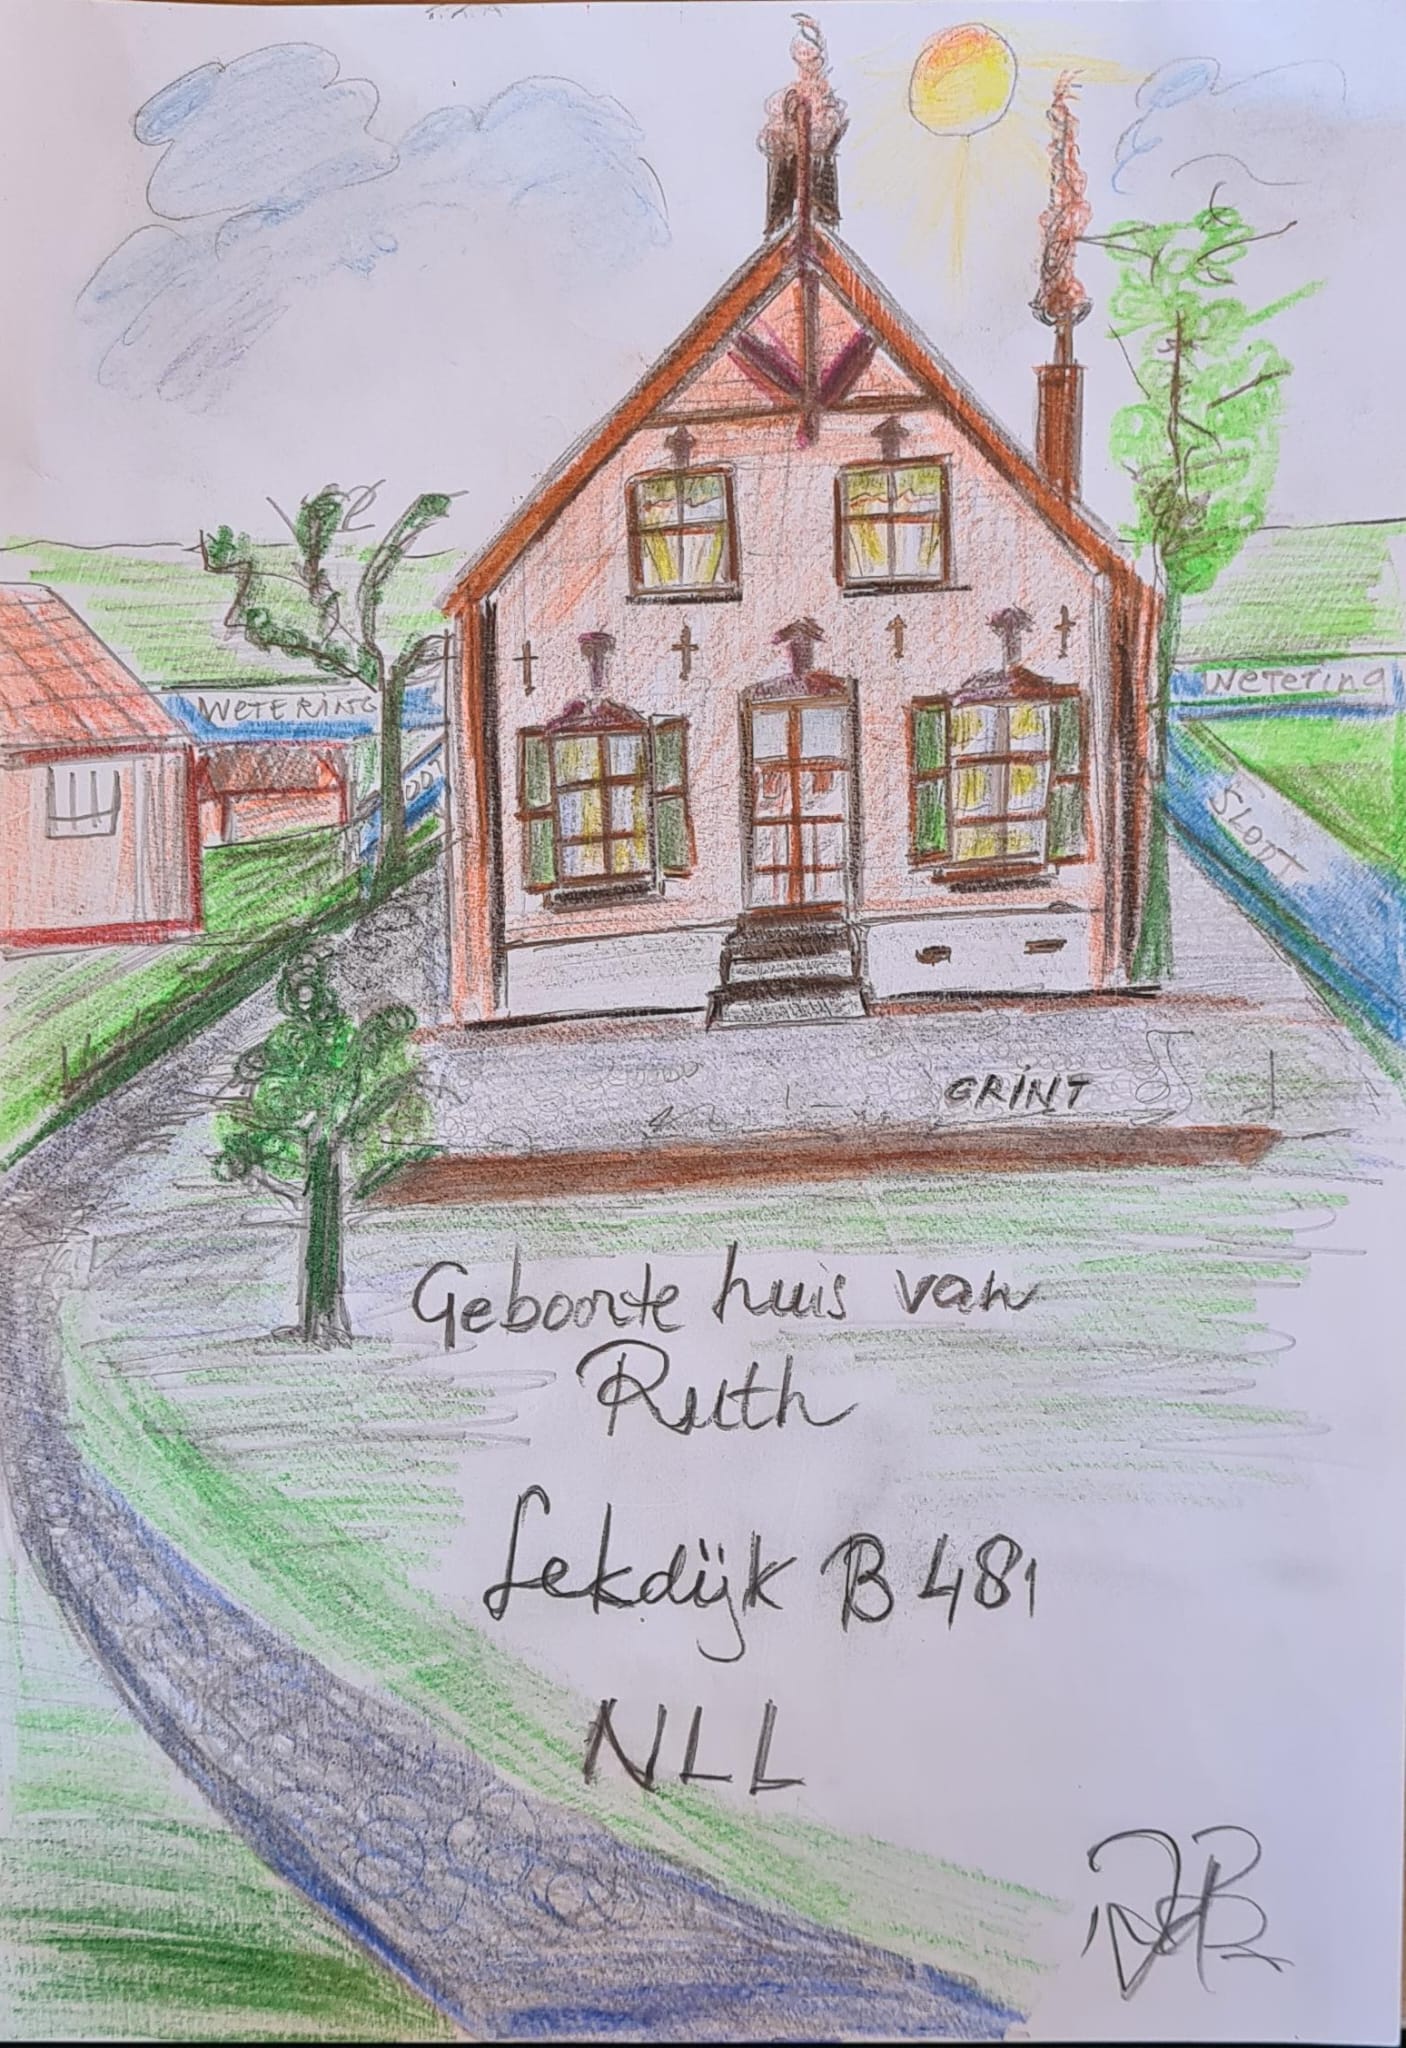 WETERING
Wetering
SLOOT
GRINT
Geboorte huis van
Ruth
Lekdijk B 481
NLL